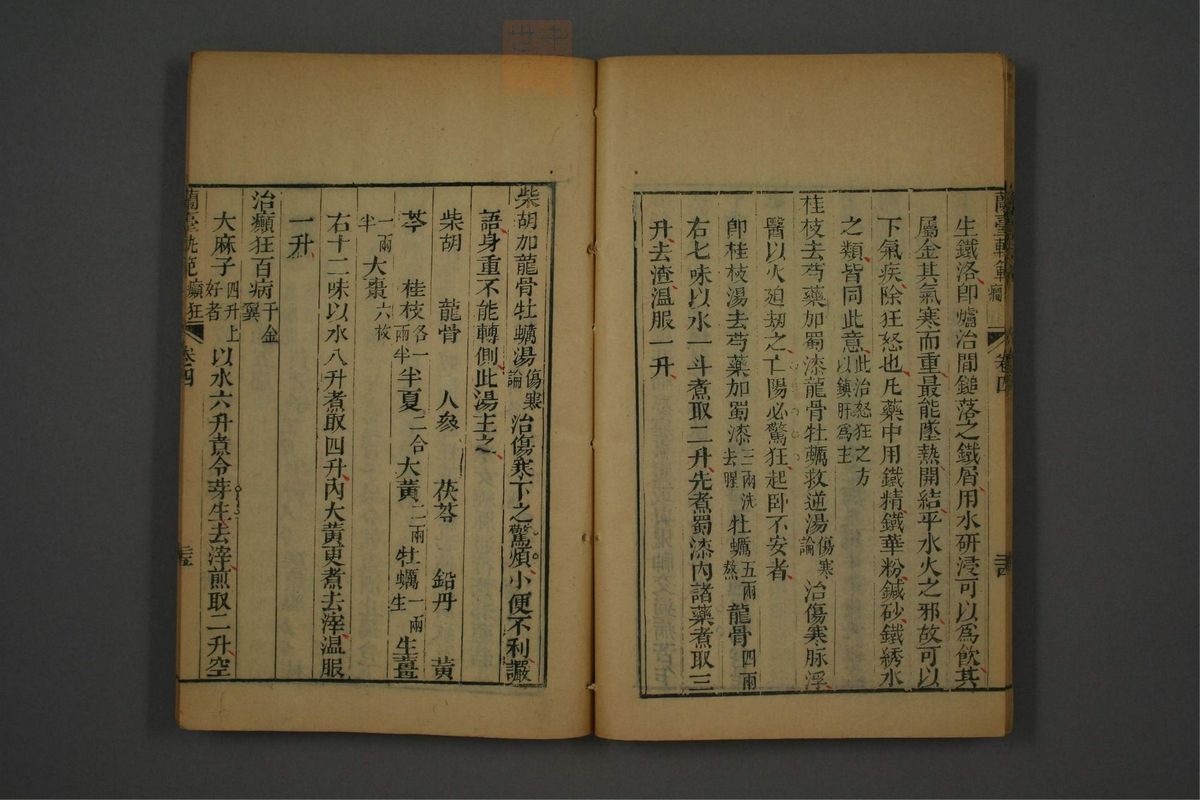 生鐵洛卽爐冶間鎚落之鐵屑用水研浸可以爲飲其
屬金其氣寒而重最能墜熱開結平水火之邪故可以
下氣疾除狂怒也凡藥中用鐵精鐵華粉鍼砂鐵綉水
之類皆同此意此治怒狂之方以鎮肝爲主
桂枝去芍藥加蜀漆龍骨牡蠣救逆湯傷寒論 治傷寒脉浮
醫以火廹刼之亡陽必驚狂起卧不安者
卽桂枝湯去芍藥加蜀漆三兩洗去腥 牡蠣五兩熬 龍骨四兩
右七味以水一斗煮取二升先煮蜀漆內諸藥煮取三
升去渣溫服一升
蘭臺軌範 癲 卷四
柴胡加龍骨牡蠣湯傷寒論 治傷寒下之驚煩小便不利讝
語身重不能轉側此湯主之
柴胡 龍骨 人參 茯苓 鉛丹 黃
芩 桂枝各一兩半 半夏二合 大黃二兩 牡蠣一兩生 生薑
一兩半 大棗六枚
右十二味以水八升煮取四升內大黃更煮去滓溫服
一升
治癲狂百病千金翼
大麻子四升上好者 以水六升煮令芽生去滓煎取二升空
蘭臺軌範 癲狂 卷四 三五